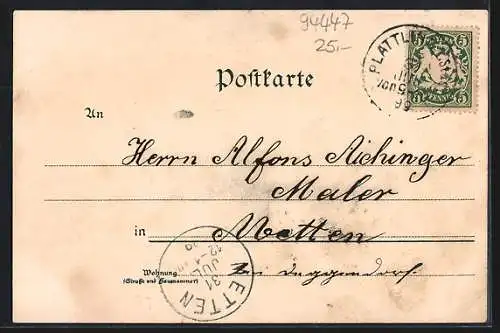 94447
25.-
PLATTLIN
99
5 5
Postkarte
An
Herrn Alfons Aichinger
Maler
in Metten
Wohnung
(Straße und Hausnummer)
bei Deggendorf.
METTEN
31
JUL
12-